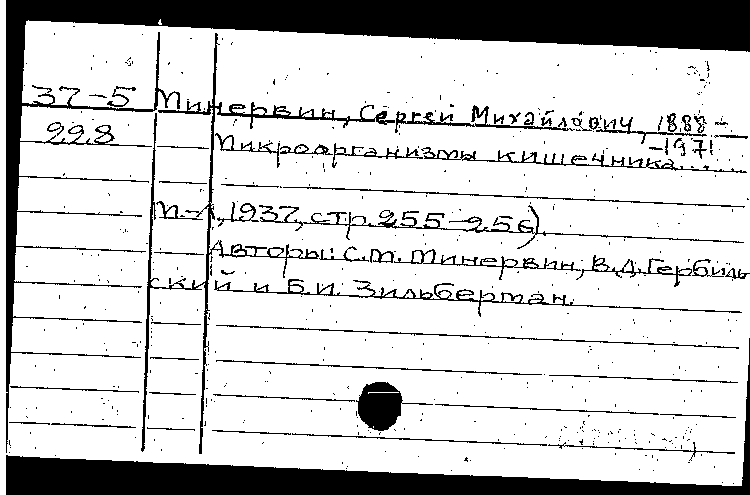 37-5 Минервин, Сергей Михайлович, 1888-
-1971
228 Микроорганизмы кишечника.....
М.-Л., 1937, стр. 255-256).
Авторы: С.М. Минервин, В.Д. Гербиль-
ский и Б.И. Зильберман.